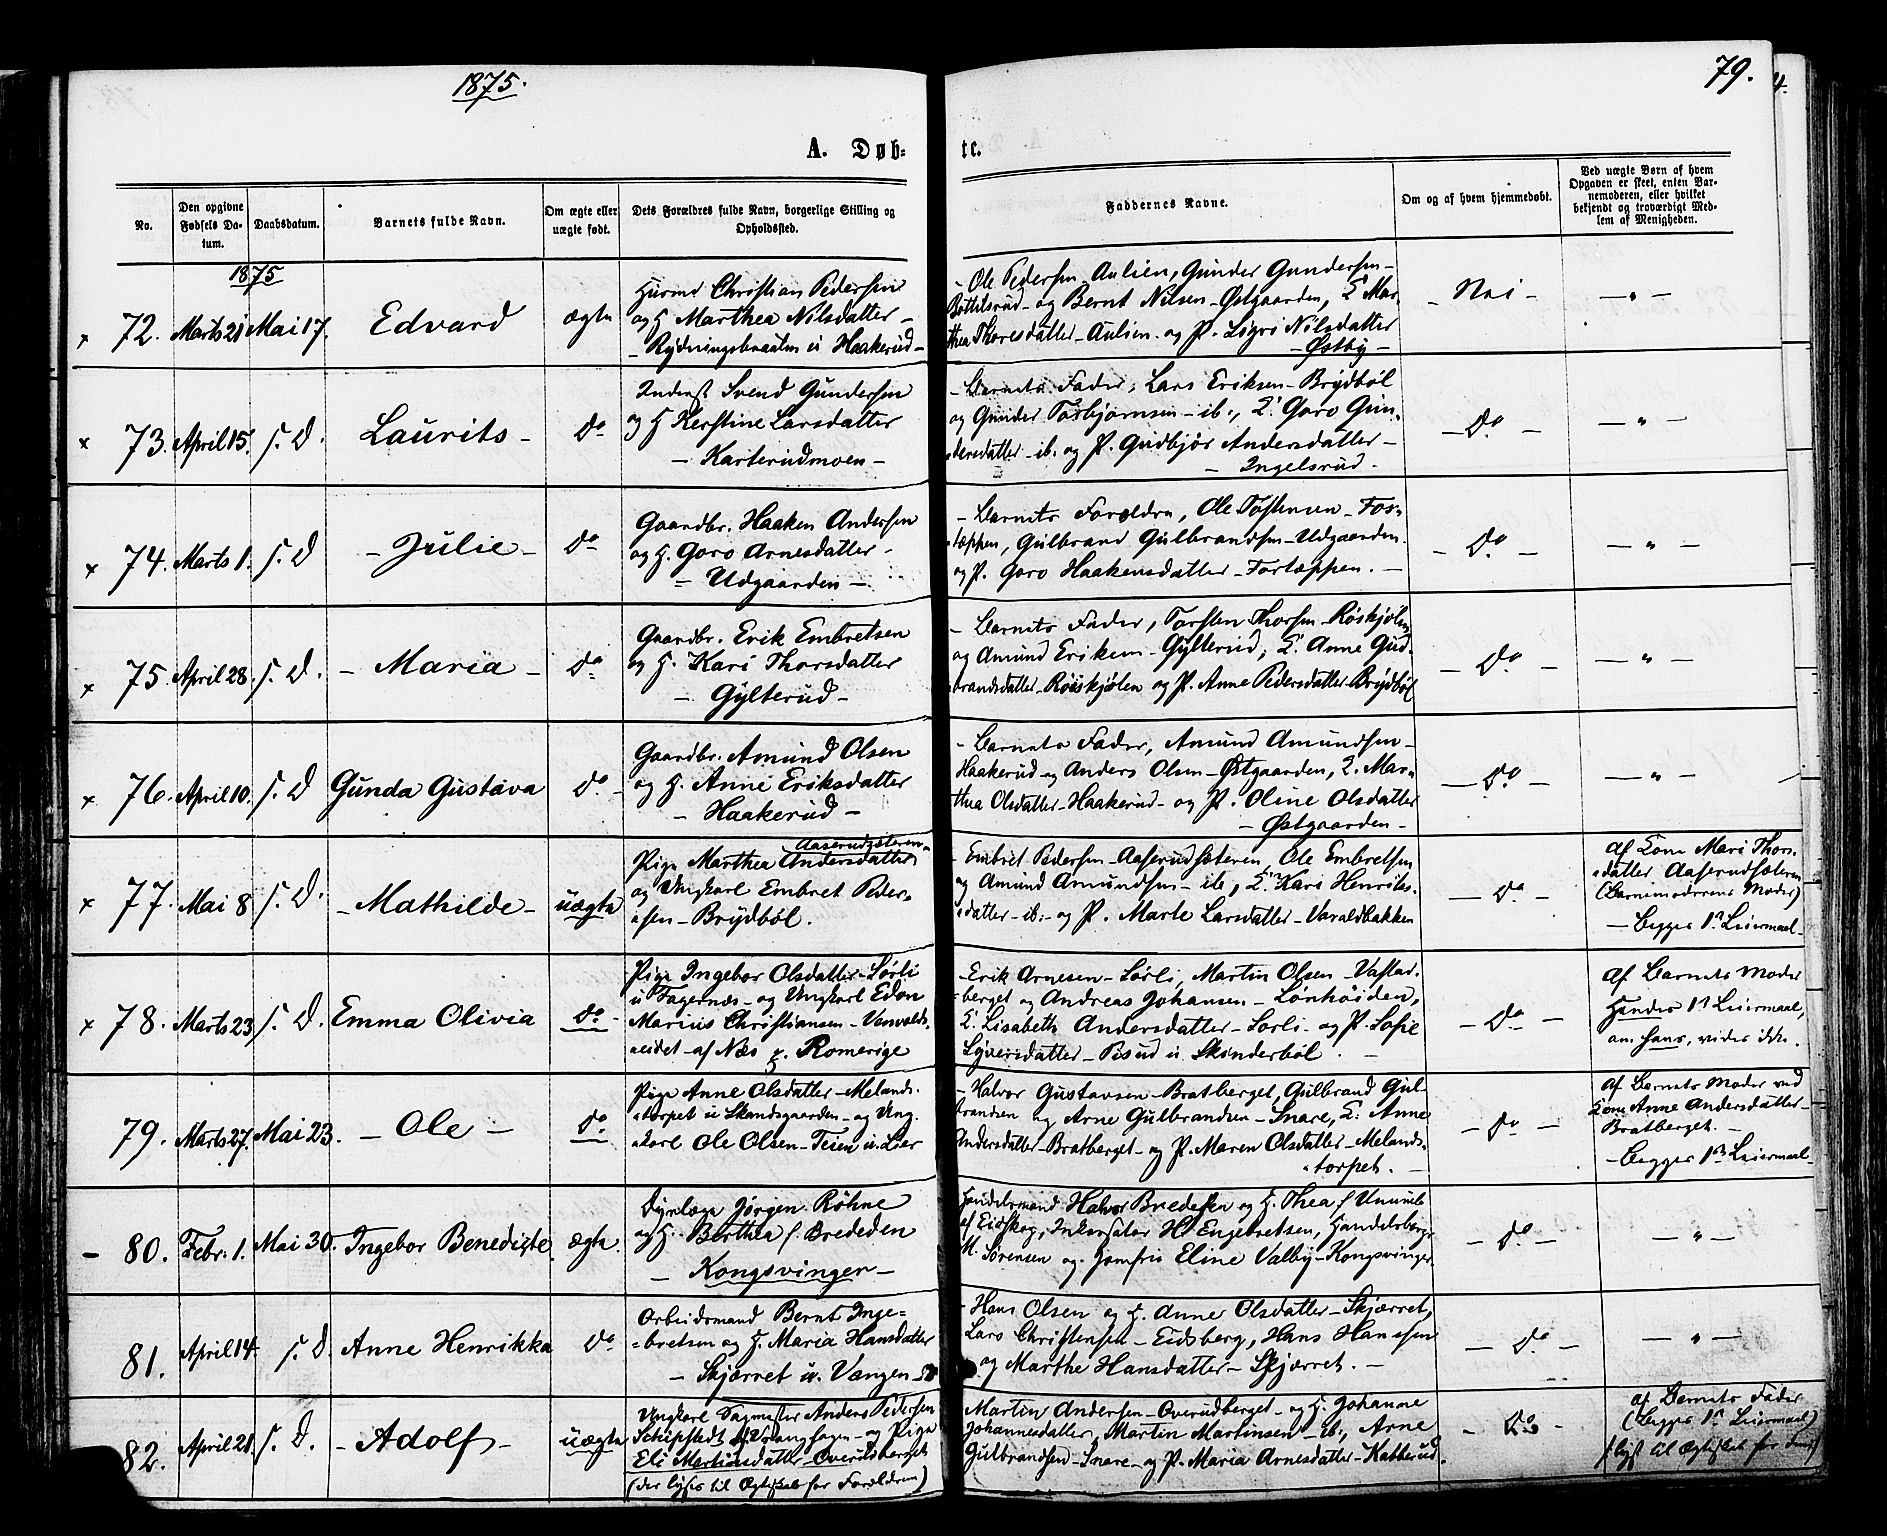 1875.
79.
A. Døb-
te.
No.
Den opgivne Fødsels Datum.
Daabsdatum.
Barnets fulde Navn.
Om ægte eller uægte født.
Dets Forældres fulde Navn, borgerlige Stilling og Opholdssted.
Faddernes Navne.
Om og af hvem hjemmedøbt.
Ved uægte Børn af hvem Opgaven er skeet, enten Barnemoderen, eller hvilket bekjendt og troværdigt Medlem af Menigheden.
1875
x 72. Marts 21 Mai 17. Edvard ægte
Husmd Christian Pedersen
og H. Marthea Nilsdatter -
- Rydningsbraaten u Haakerud -
- Ole Pedersen Aulien, Gunder Gundersen -
Bottilsrud - og Bernt Nilsen - Østgaarden, K. Mar-
thea Thoresdatter - Aulien. og P. Sigri Nilsdatter
- Østby -
- Nei -
- " -
x 73. April 15. s. D. Laurits - do
Inderst Svend Gundersen
og H. Kerstine Larsdatter
- Karterudmoen -
- Barnets Fader, Lars Eriksen - Brydbøl
og Gunder Torbjørnsen - ib:, K. Goro Gun-
dersdatter - ib. og P. Gudbjør Andersdatter -
- Ingelsrud -
- do -
- " -
x 74. Marts 1. s. D - Julie - do
Gaardbr. Haaken Andersen
og H. Goro Arnesdatter -
= Udgaarden -
- Barnets Forældre, Ole Tostensen - For-
tæppen, Gulbrand Gulbrandsen - Udgaarden.
og P. Goro Haakensdatter - Fortæppen. -
- do -
- " -
x 75. April 28. s. D. - Maria - do
Gaardbr. Erik Embretsen
og H. Kari Thorsdatter
- Gylterud -
- Barnets Fader, Torsten Thorsen - Röiskjölen,
og Amund Eriksen - Gylterud, K. Anne Gud-
brandsdatter - Röiskjölen og P. Anne Pedersdatter - Brydbøl
- do -
- " -
x 76. April 10. s. D Gunda Gustava do
Gaardbr. Amund Olsen
og H. Anne Eriksdatter
- Haakerud -
- Barnets Fader, Amund Amundsen -
Haakerud og Anders Olsen - Østgaarden, K. Mar-
thea Olsdatter - Haakerud - og P. Oline Olsdatter
- Østgaarden -
- do -
- " -
x 77. Mai 8 s. D. - Mathilde - uægte
Aaserudsæteren
Pige Marthea Andersdatter
og Ungkarl Embret Peder-
sen - Brydbøl.
- Embret Pedersen - Aaserudsæteren, Ole Embretsen
og Amund Amundsen - ib, K. Kari Henriks-
datter - ib. - og P. Marte Larsdatter - Varaldbakken
- do -
af Kone Mari Thors-
datter Aaserudsæteren
(Barnemoderens Moder)
- Begges 1ste Leiermaal -
x 78. Marts 23 s. D. Emma Olivia do
Pige Ingebor Olsdatter - Sørli
u Fagernæs - og Ungkarl Edon
Marius Christiansen - Vanvolds-
eidet - af Næs p. Romerige
- Erik Arnesen - Sørli, Martin Olsen - Vastad-
berget og Andreas Johansen - Lønhöiden,
K. Lisabeth Andersdatter - Sørli - og P. Sofie
Syversdatter - Pisud u. Skinderbøl. -
- do -
af Barnets Moder
Hendes 1ste Leiermaal,
om hans, vides ikke.
79. Marts 27. Mai 23. - Ole - do
Pige Anne Olsdatter - Melands-
torpet u Skandsgaarden - og Ung-
karl Ole Olsen - Teien u. Lier
- Halvor Gustavsen - Bratberget, Gulbrand Gul-
brandsen og Arne Gulbrandsen - Snare, K. Anne
Andersdatter - Bratberget - og P. Maren Olsdatter - Melands-
torpet. -
- do -
af Barnets Moder ved
Kone Anne Andersdatter -
Bratberget. -
- Begges 1ste Leiermaal -
- 80. Febr: 1. Mai 30. Ingebor Benedicte ægte
Dyrlæge Jørgen Röhne
og H. Berthea f. Brededen
- Kongsvinger -
Handelsmand Halvor Bredesen og H. Thea f
af Eidskog, H. Engebretsen, Handelsborger
M. Sørensen og Jomfru Eline Valby - Kongsvinger
- do -
- " -
81. April 14. s. D. Anne Henrikka do
Arbeidsmand Bernt Inge-
bretsen og H. Maria Hansdatter
- Skjærret u. Vangen
- Hans Olsen og H. Anne Olsdatter - Skjærret,
Lars Christensen - Eidsberg, Hans Hansen
og Marthe Hansdatter - Skjærret. -
- do
- " -
82. April 21. s. D. - Adolf - uægte
Ungkarl Sagmester Anders Pedersen
Schipstedt af Vrangfogn - og Pige
Eli Martinsdatter - Overudberget
(der lyses til Ægteskab for Forældrene)
Martin Andersen - Overudberget - og H. Johanne
Johannesdatter, Martin Martinsen - ib., Arne
Gulbrandsen - Snare - og P. Maria Arnesdatter - Katterud.
- do -
af Barnets Fader
(Begges 1ste Leiermaal)